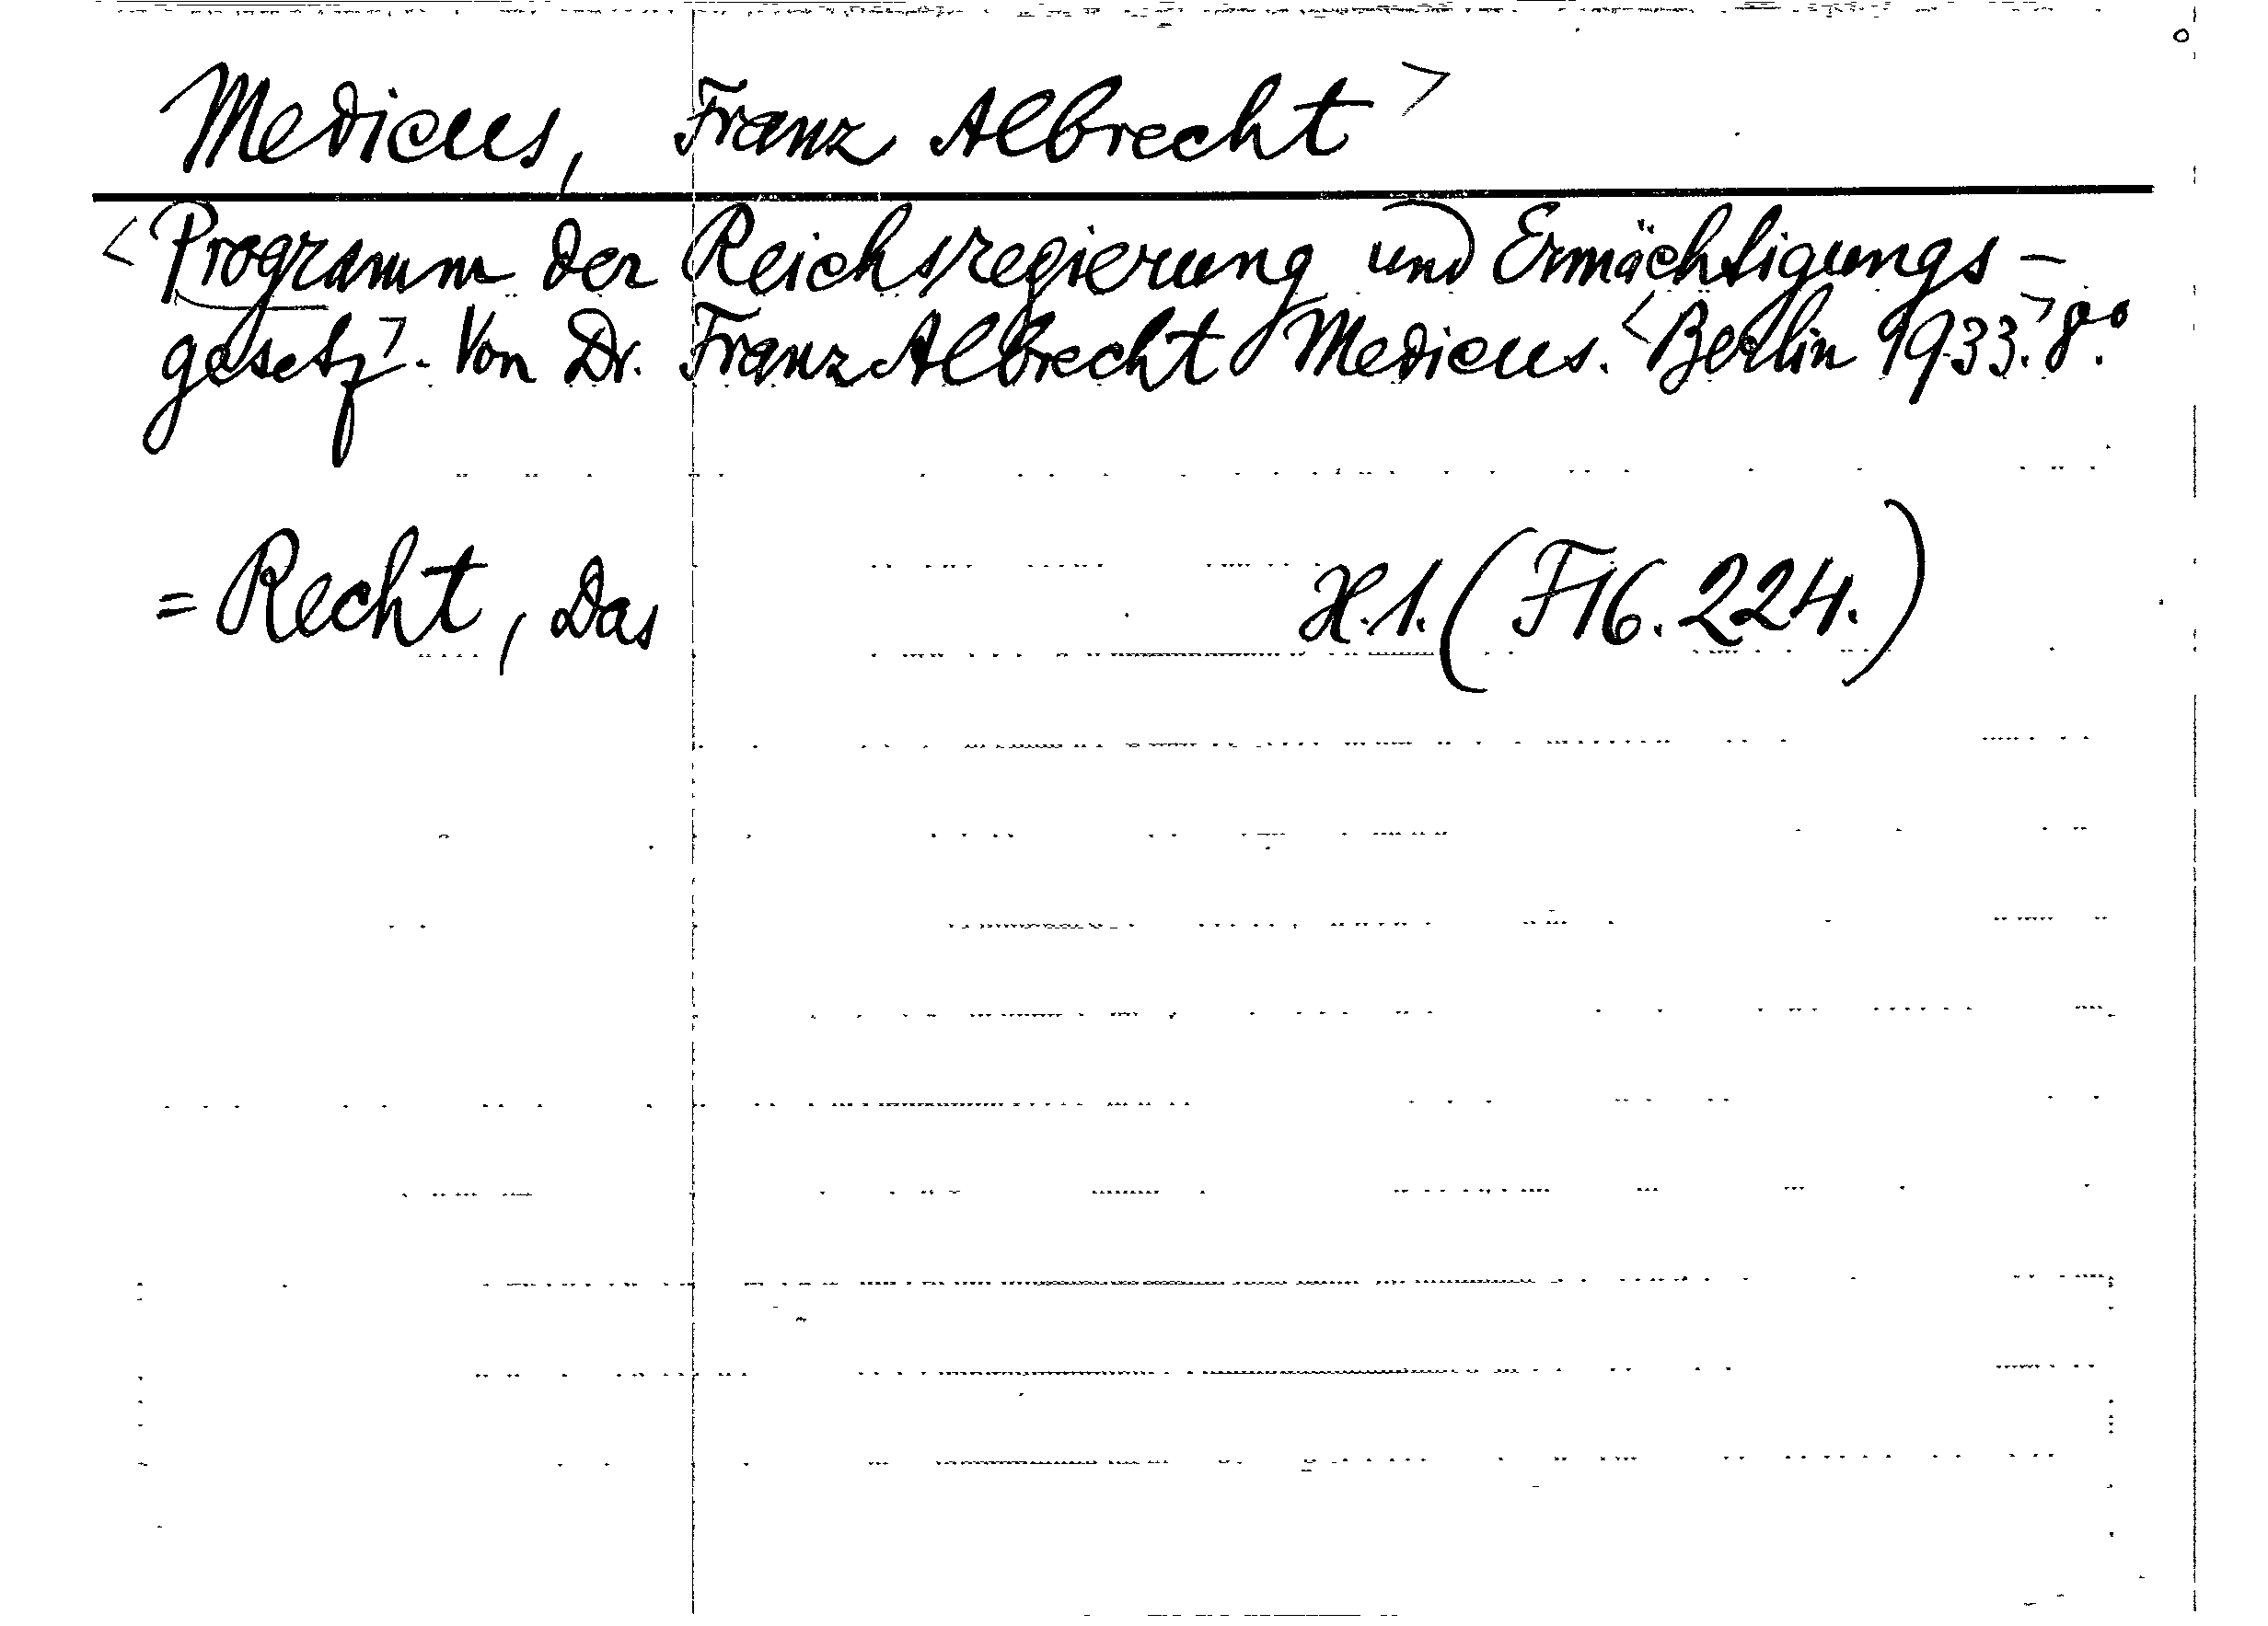 Medicus, Franz Albrecht >
< Programm der Reichsregierung und Ermächtigungs-
gesetz >. Von Dr. Franz Albrecht Medicus. < Berlin 1933. > 8°.
= Recht, Das H. 1. (F16. 224.)